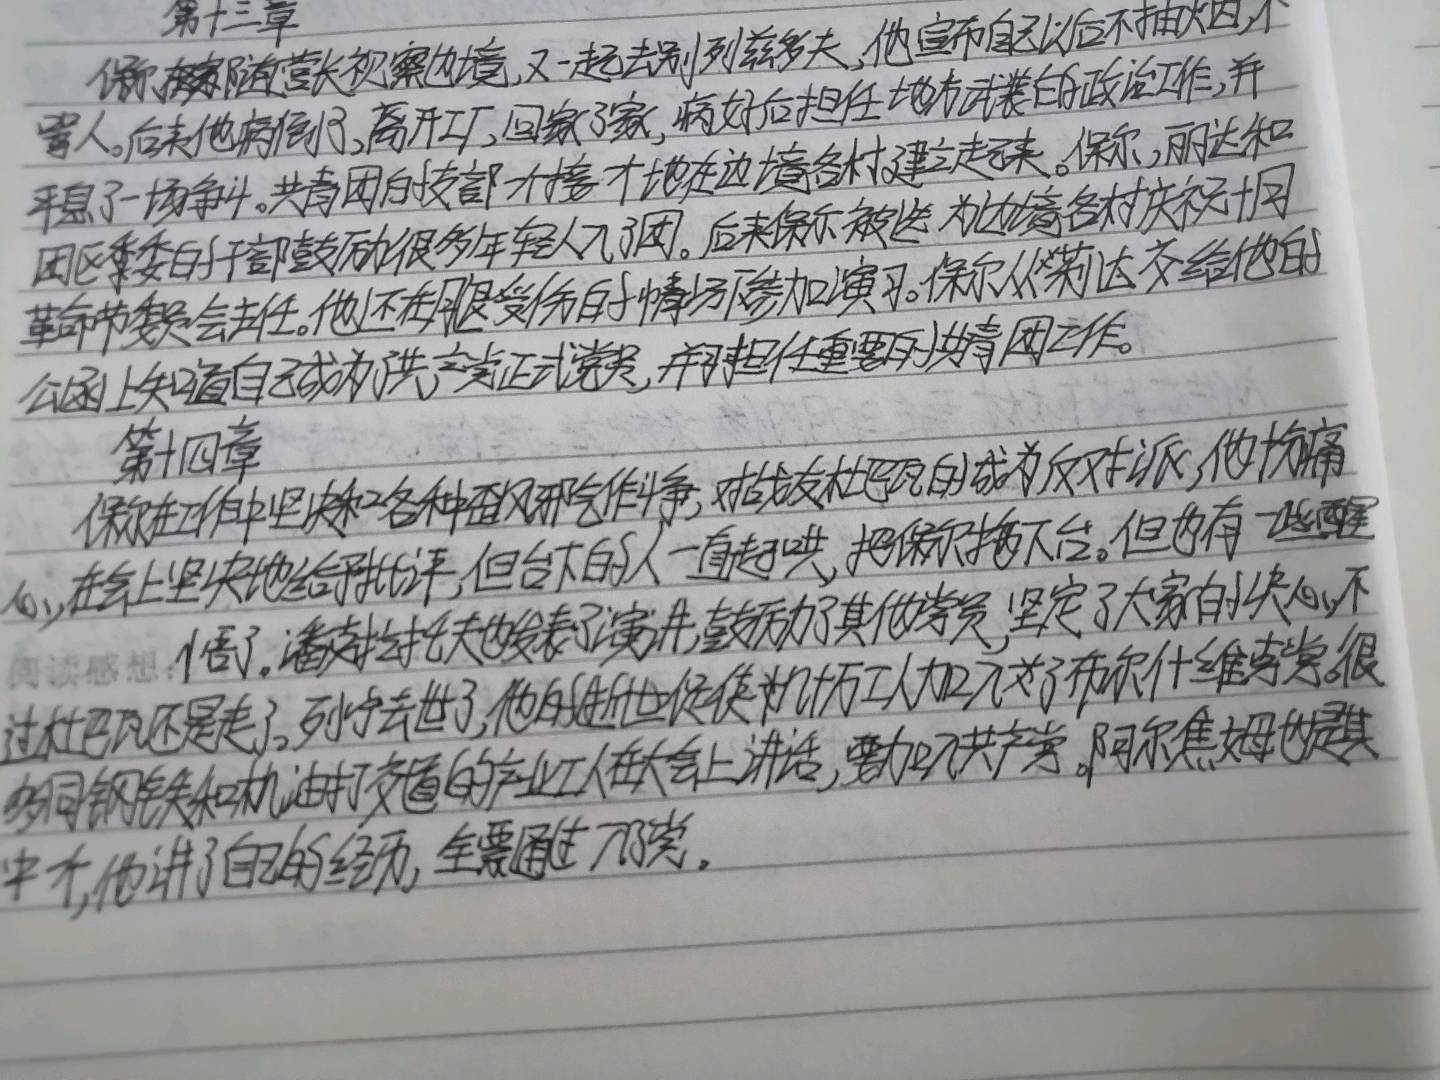 第十三章
保尔随营长视察边境,又一起去别列兹多夫,他宣布自己以后不抽烟,不
骂人。后来他病倒了,离开工厂,回了家,病好后担任地方武装的政治工作,并
平息了一场争斗。共青团的支部一个接一个地在边境各村建立起来。保尔,丽达和
团区委委的干部鼓励很多年轻人入了团。后来保尔被选为边境各村庆祝十月
革命节委员会主任。他还在腿受伤的情况下参加演习。保尔从莉达交给他的
公函上知道自己成为了共产党正式党员,并担任重要的共青团工作。
第十四章
保尔在工作中坚决和各种歪风邪气作斗争,对战友杜巴瓦的成为反对派,他十分痛
心,在会上坚决地给予批评,但台下的人一直起哄,把保尔撵下台。但也有一些醒
阅读感想:
悟了。潘克拉托夫也发表了演讲,鼓励了其他党员,坚定了大家的决心,不
过杜巴瓦还是走了。列宁去世了,他的逝世促使几十万工人加入了布尔什维克党。很
多同钢铁和机油打交道的产业工人在大会上讲话,要加入共产党。阿尔焦姆也是其
中一个,他讲了自己的经历,全票通过入了党。